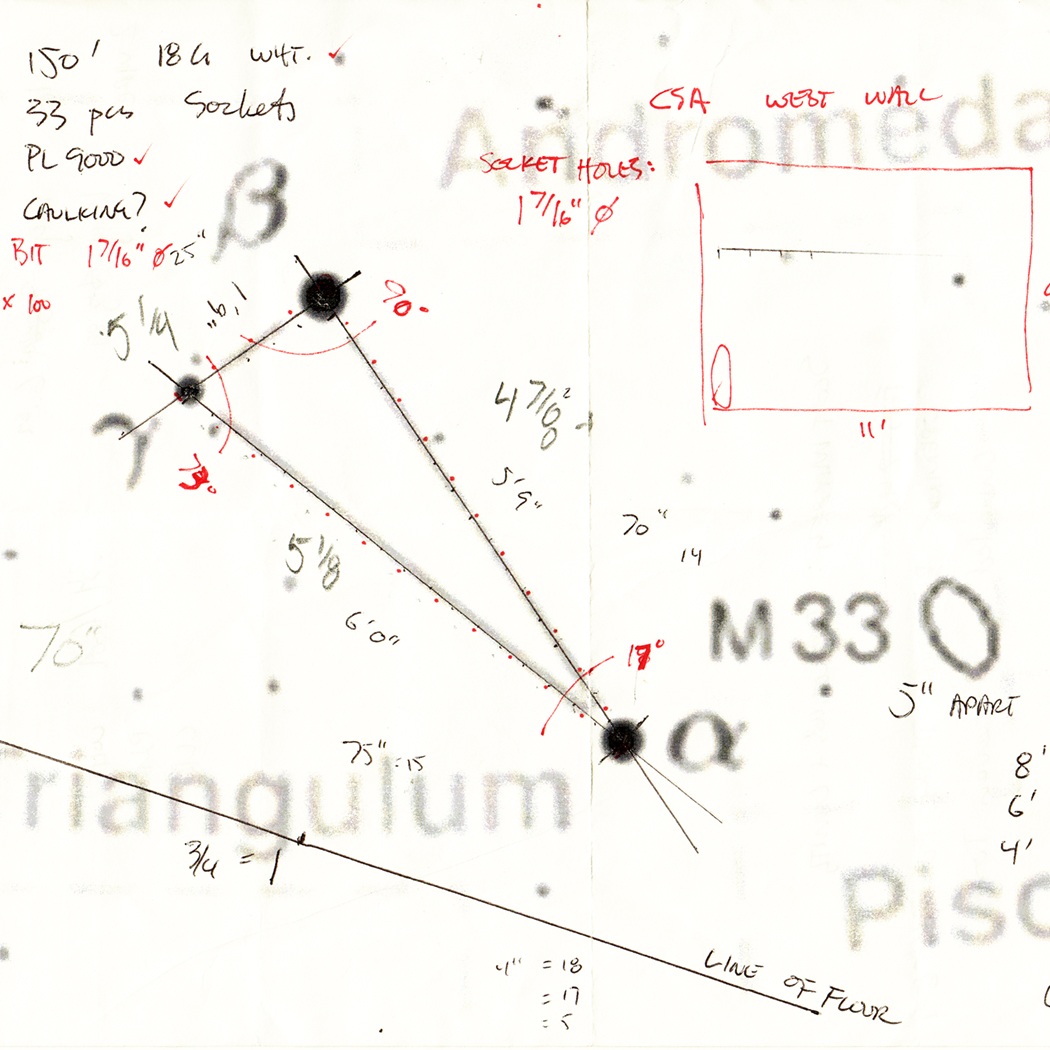 150' 18G WHT.
33 pcs Sockets
PL 9000
CAULKING?
BIT 1 7/16" Ø 25"
x 100
CSA WEST WALL
Andromeda
SOCKET HOLES:
1 7/16" Ø
11'
β
90°
5 1/4
1'9"
γ
73°
4 7/8
5'9"
5 1/8
6'0"
70"
14
M 33
5" APART
76"
17°
α
75" = 15
8'
6'
4'
riangulum
3/4 = 1
Pisc
LINE OF FLOOR
4" = 18
= 17
= 5